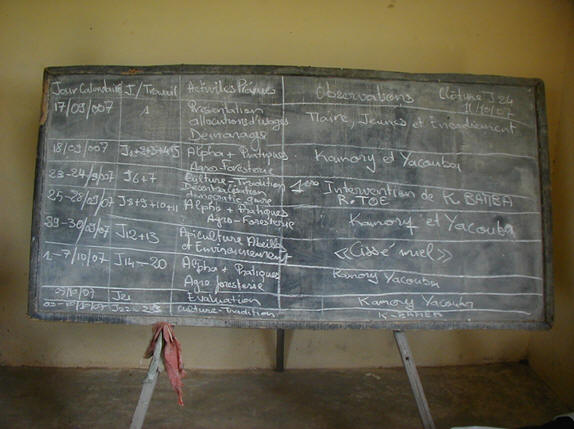 Jour Calendaire J/Travail Activités Prévues Observations Clôture J24
11/10/07
17/09/007 1 Présentation
allocutions d'usages
Démarrage
Maire, Jeunes et Encadrement
18/09/007 J2+2+3+4+5 Alpha + Pratiques
Agro-Foresterie
Kamory et Yacouba
23-24/9/07 J6+7 Culture-Tradition
Décentralisation
1ère Intervention de K BAMBA
R.TOE
25-28/09/07 J8+9+10+11 Alpha + Pratiques
Agro-Foresterie
Kamory et Yacouba
29-30/09/07 J12+13 Apiculture Abeilles
et Environnement
«Cissé miel»
1-7/10/07 J14-20 Alpha + Pratiques
Agro foresterie
Kamory Yacouba
Evaluation Kamory Yacouba
Culture-Tradition K-BAMBA